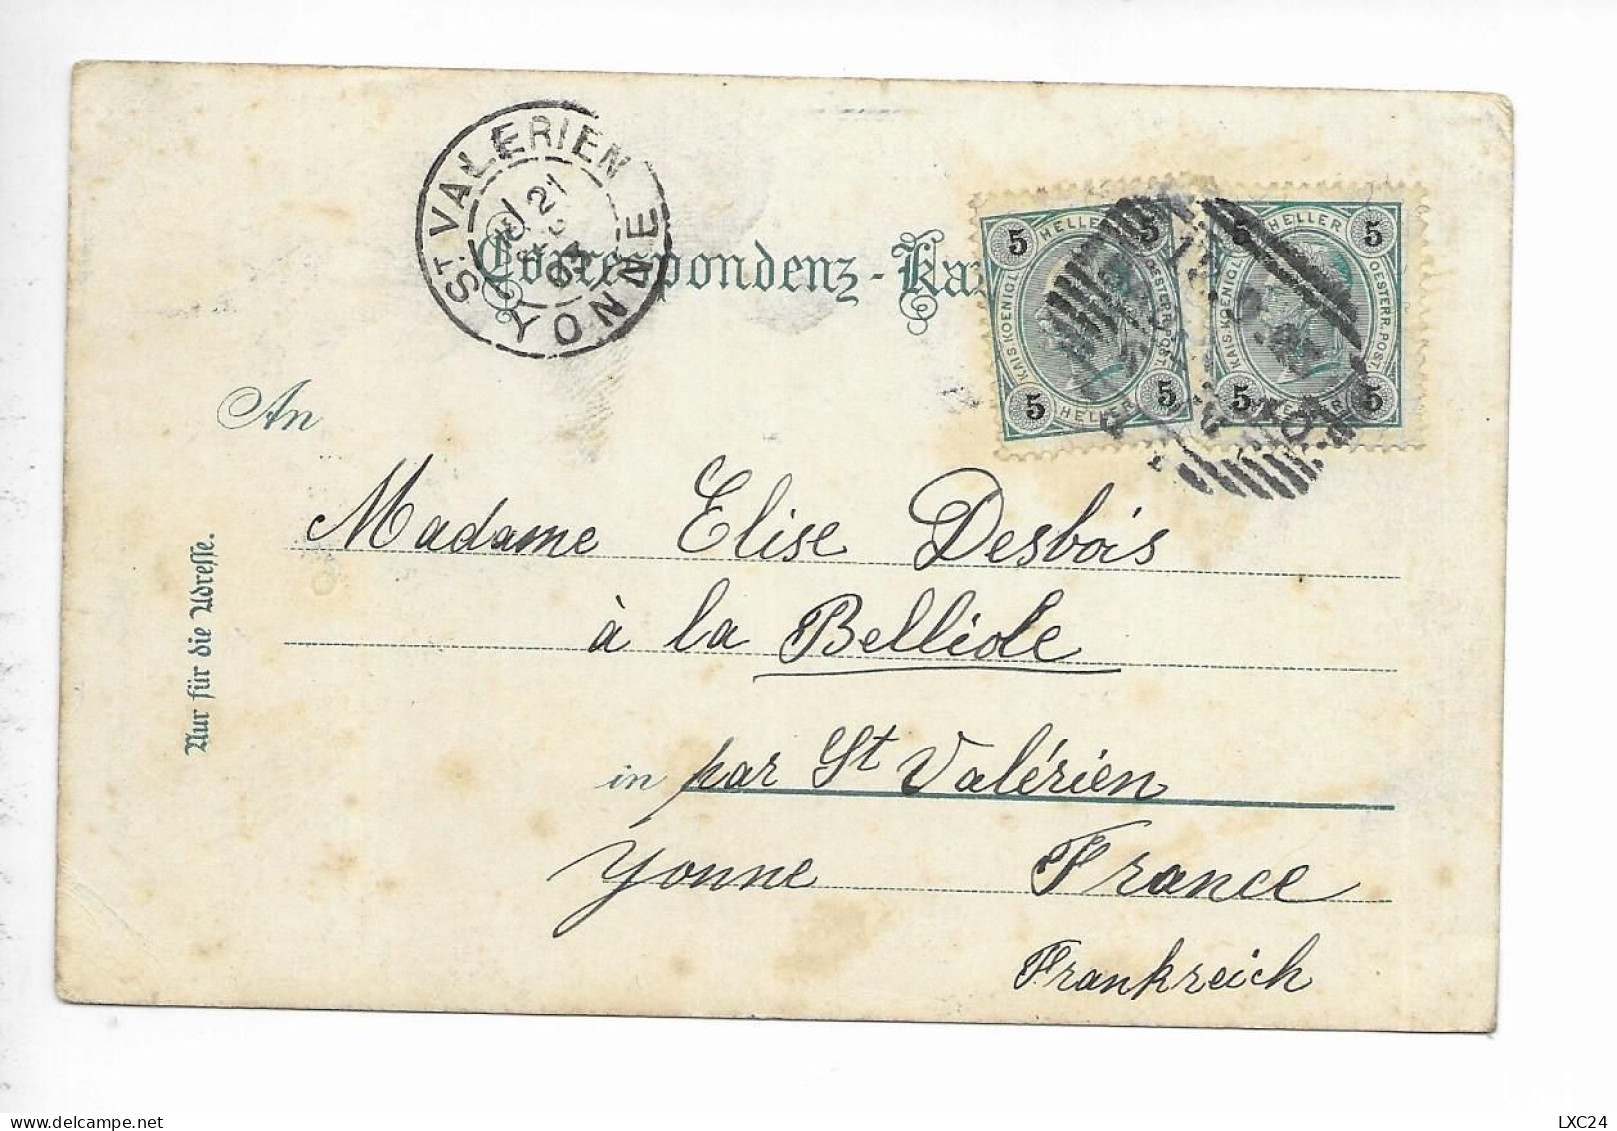 ST VALERIEN
21
03
YONNE
Correspondenz-Kar
5 HELLER 5
KAIS. KOENIGL. OESTERR. POST
5 HELLER 5
5 HELLER 5
KAIS. KOENIGL. OESTERR. POST
5 HELLER 5
An
Madame Elise Desbois
à la Belliole
in par St Valérien
Yonne France
Frankreich
Nur für die Adresse.
delcampe.net
LXC24